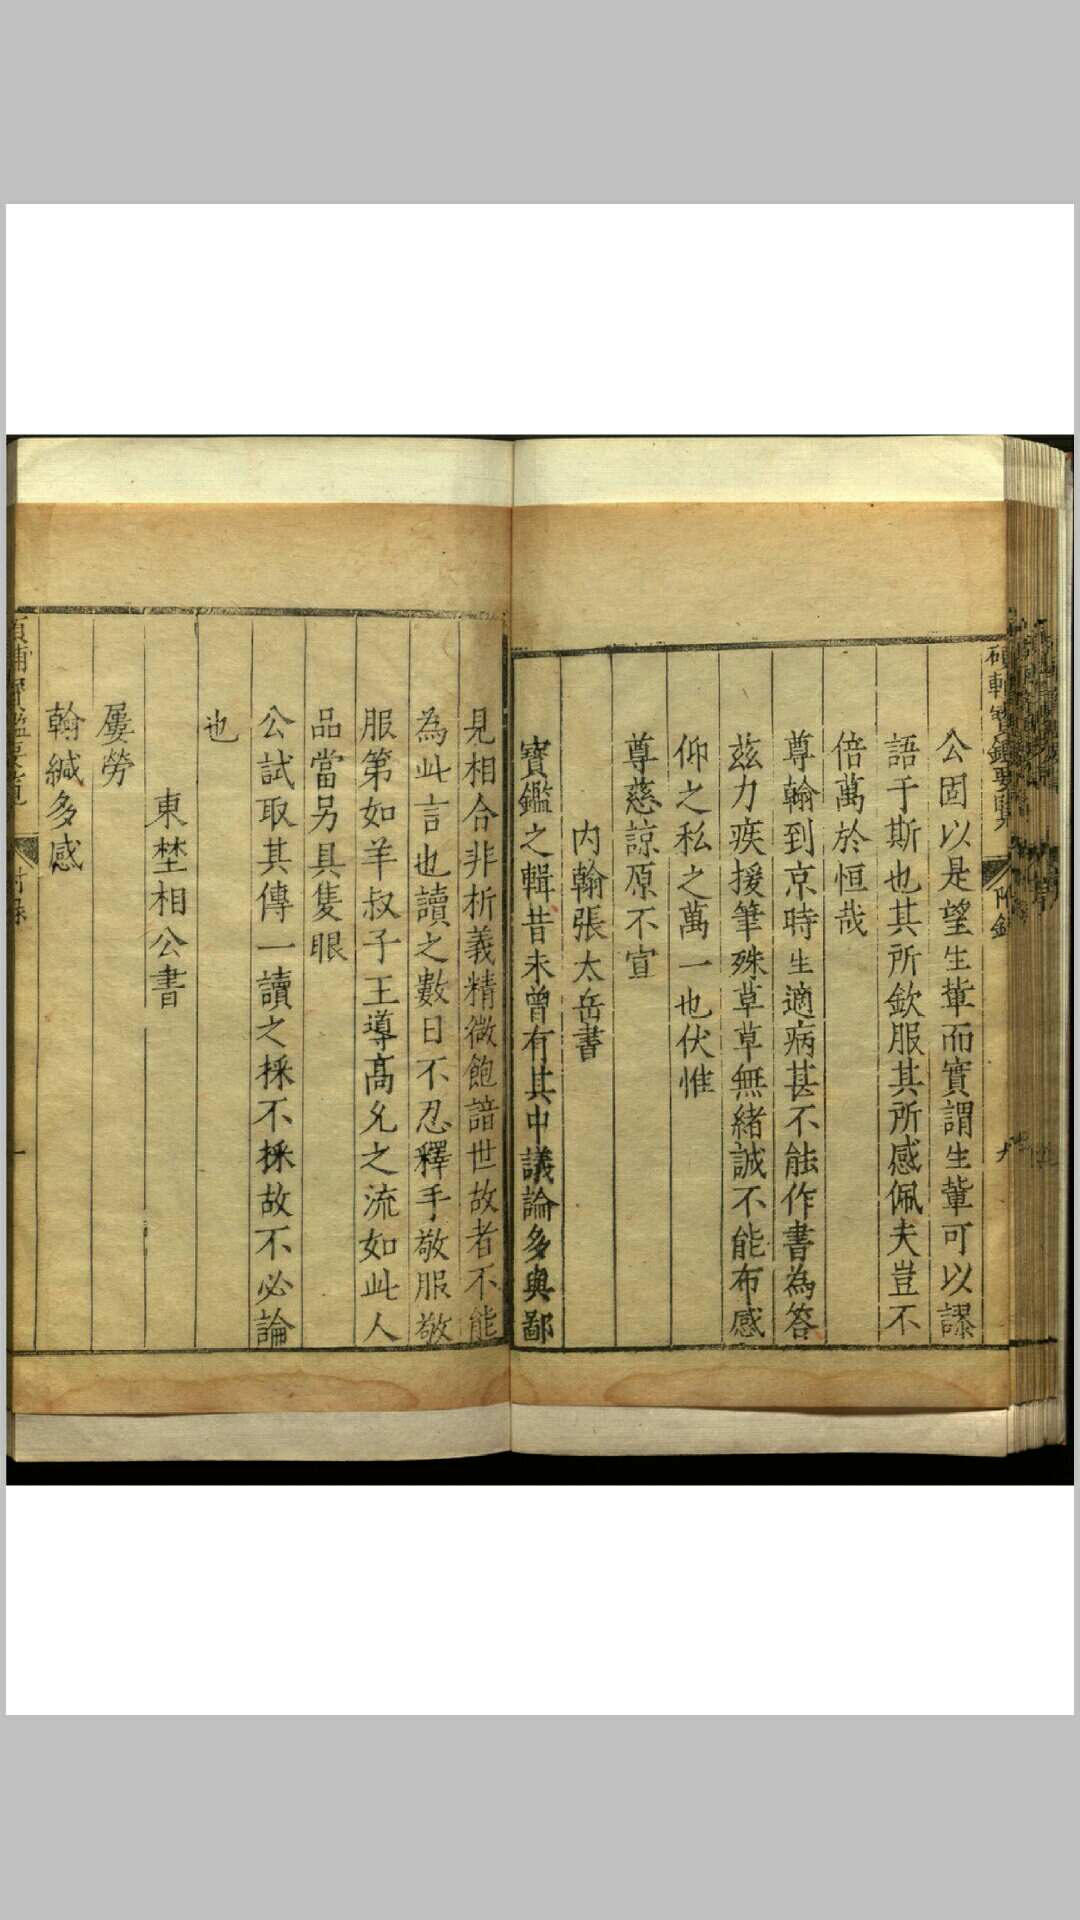 公固以是望生軰而實謂生軰可以謬
語于斯也其所欽服其所感佩夫豈不
倍萬於恒哉
尊翰到京時生適病甚不能作書為答
兹力疾援筆殊草草無緒誠不能布感
仰之私之萬一也伏惟
尊慈諒原不宣
内翰張太岳書
寳鑑之輯昔未曾有其中議論多與鄙
見相合非析義精微飽諳世故者不能
為此言也讀之數日不忍釋手敬服敬
服第如羊叔子王導高允之流如此人
品當另具隻眼
公試取其傳一讀之採不採故不必論
也
東埜相公書
屢勞
翰緘多感